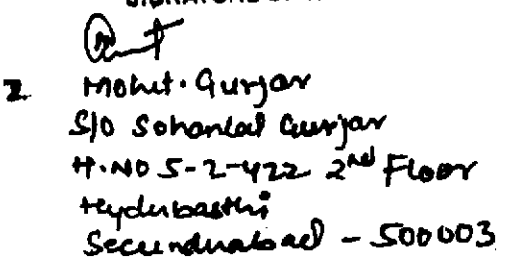 2 Mohit. Gurjar
S/o Sohanlal Gurjar
H.NO 5-2-422 2nd Floor
Hyderbasthi
Secunderabad - 500003